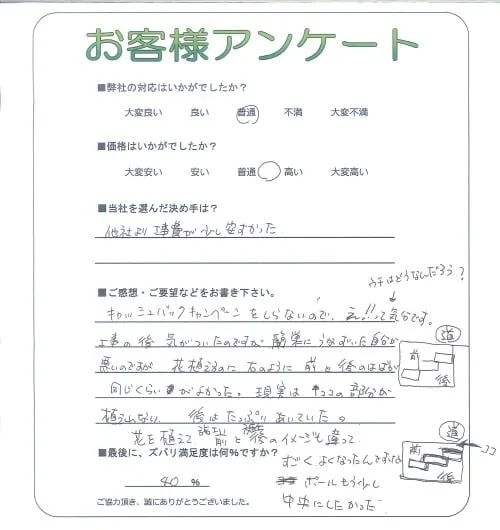 お客様アンケート
■弊社の対応はいかがでしたか？
大変良い 良い 普通 不満 大変不満
■価格はいかがでしたか？
大変安い 安い 普通 高い 大変高い
■当社を選んだ決め手は？
他社より工事費が少し安すかった
■ご感想・ご要望などをお書き下さい。
ウチはどうなんだろう？
キャッシュバックキャンペーンをしらないので、え!!って気分です。
工事の後気がついたのですが簡単にうなずいた自分が
悪いのですが 花植えるのに右のように前と後のはばが
同じくらいがよかった。現実はココの部分が
植えれない 後はたっぷりあいていた。
花を植えて 前と後のイメージも違って
道
前
後
■最後に、ズバリ満足度は何%ですか？
40 %
よくなったんですが
ポールもう少し
中央にしたかった
道
前
後
ココ
ご協力頂き、誠にありがとうございました。